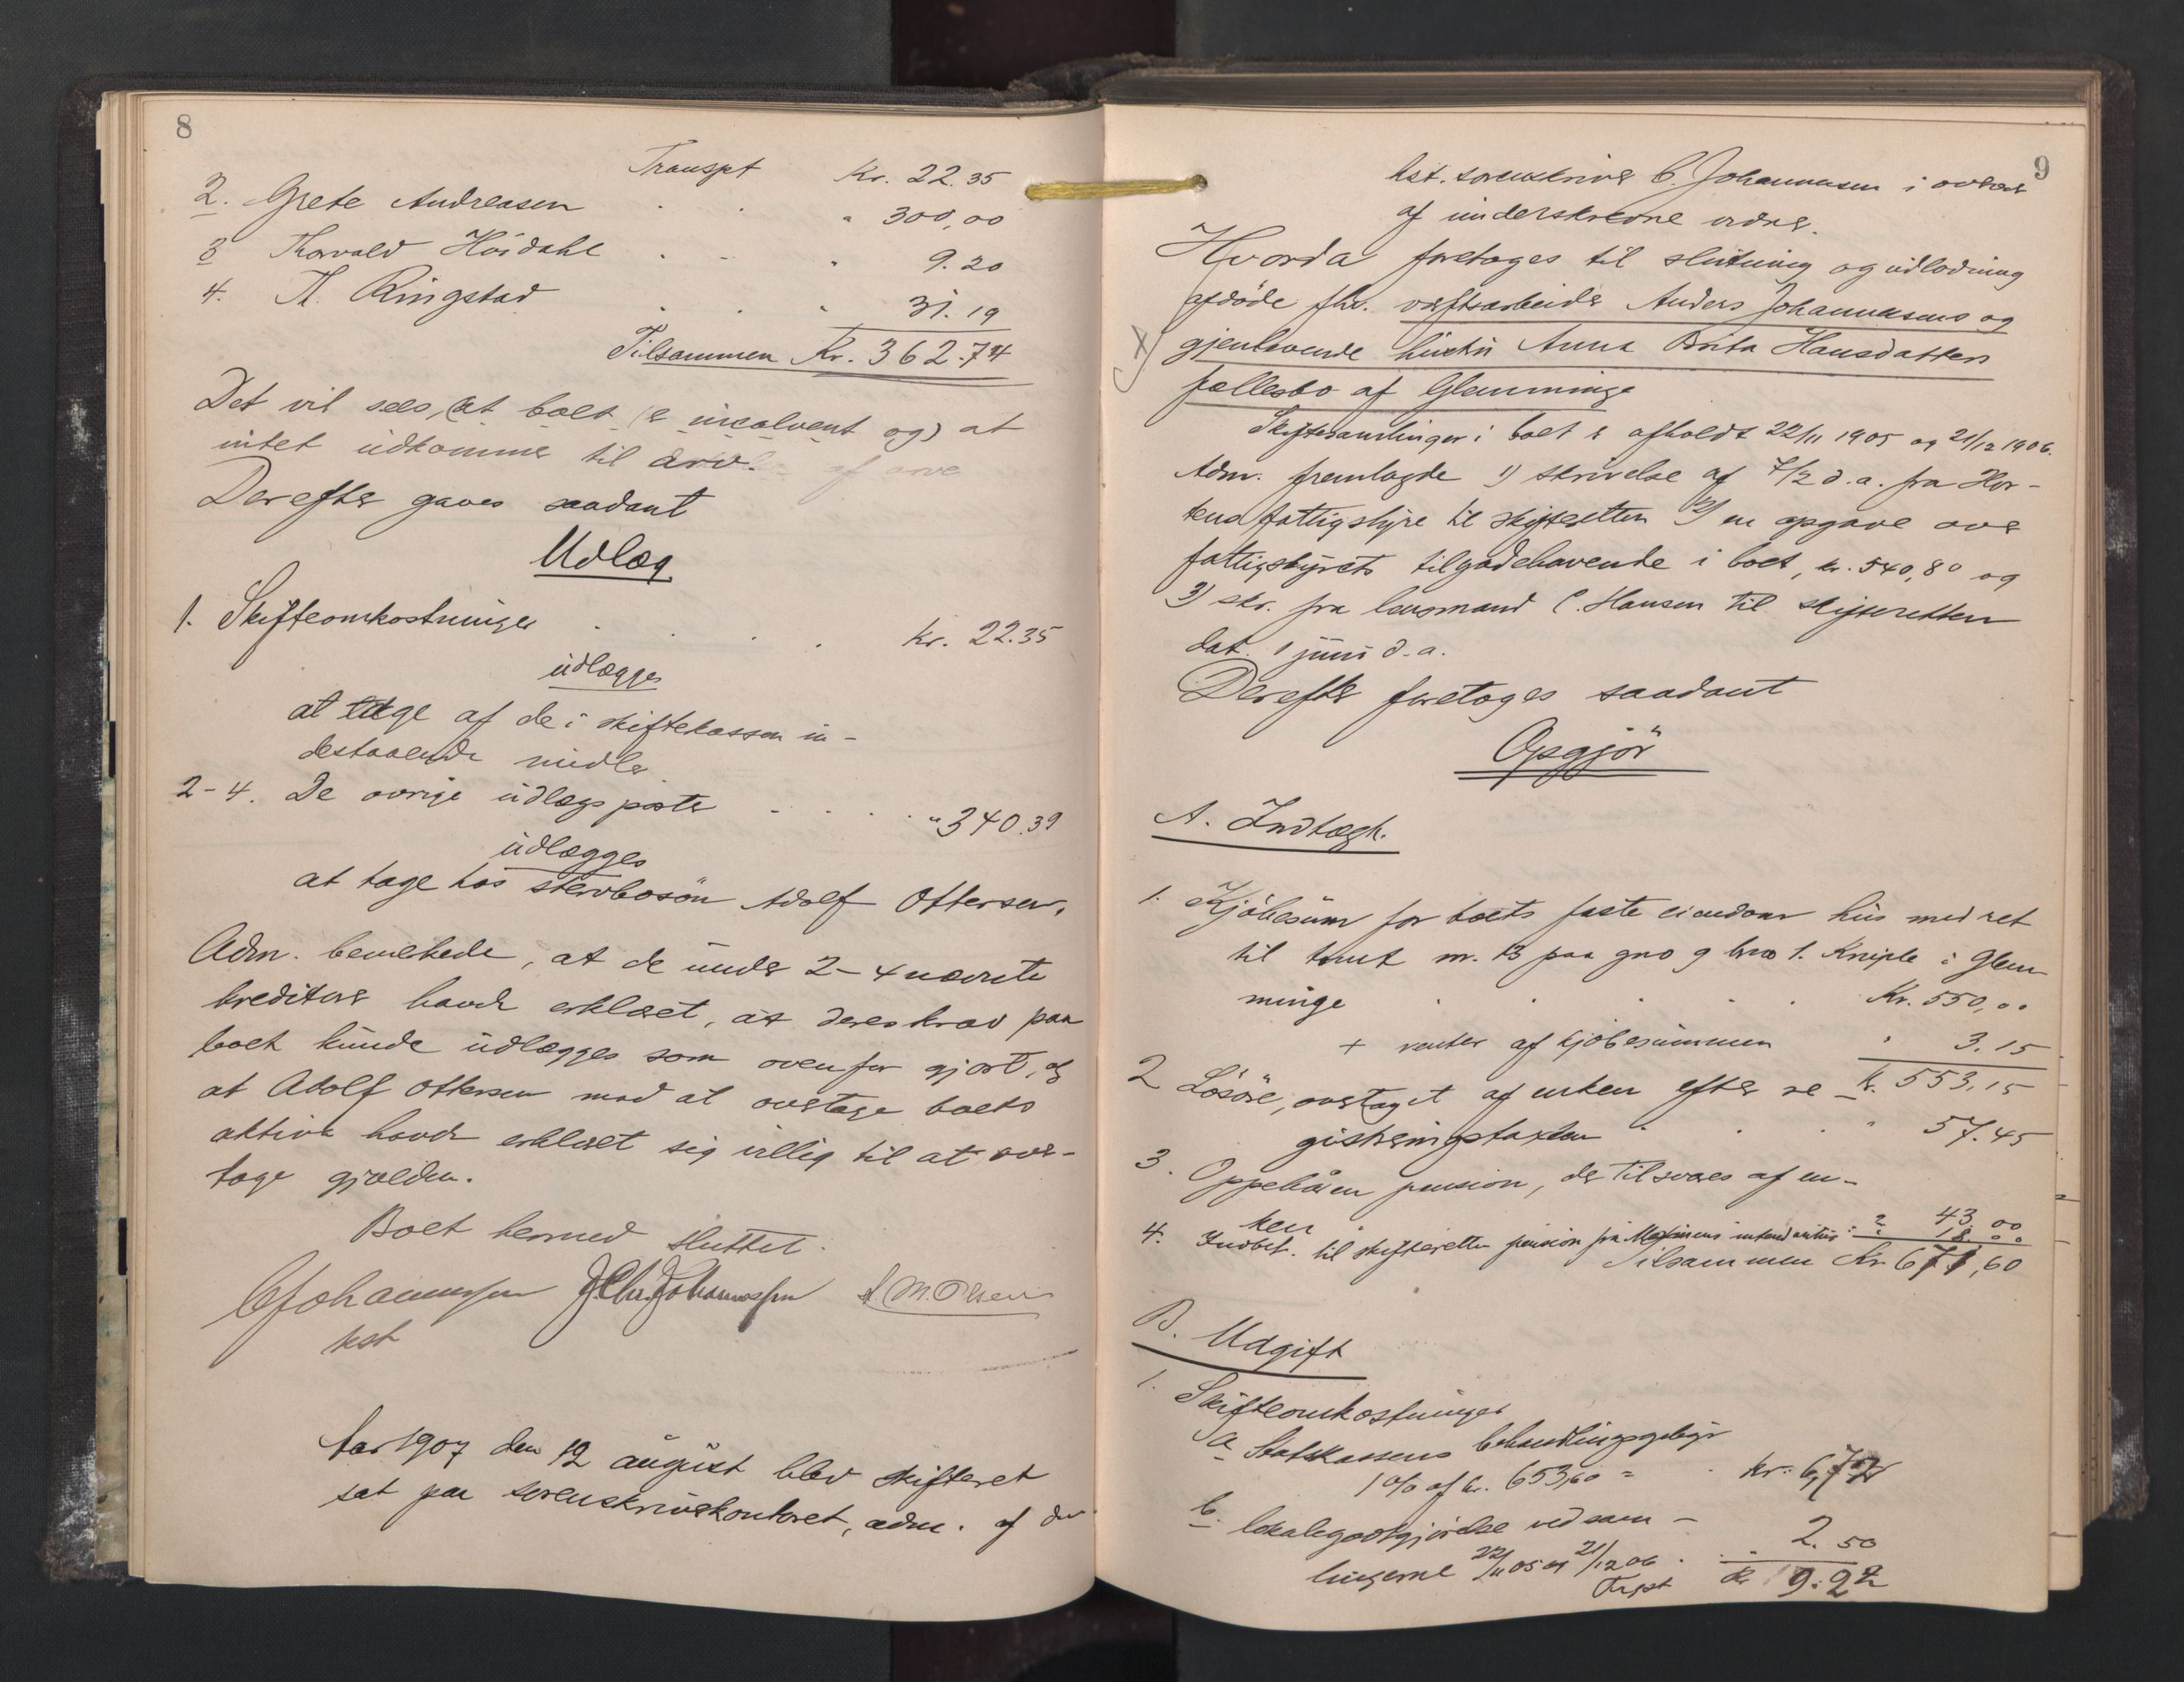 8
Transpt Kr. 22.35
2. Grete Andreasen " 300,00
3 Thorvald Höidahl " 9.20
4. Th. Ringstad " 31.19
Tilsammen Kr. 362.74
Det vil sees, (at boet er insolvent og) at
intet udkommer til arv.
Derefter gaves saadant
Udlæg
1. Skifteomkostninger Kr. 22.35
udlægges
at tage af de i skiftekassen in-
destaaende midler
2-4. De øvrige udlægsposter " 340.39
udlægges
at tage hos stervbosön Adolf Ottersen.
Adm. bemerkede, at de under 2-4 nævnte
kreditorer havde erklæret, at deres krav paa
boet kunde udlægges som ovenfor gjort, og
at Adolf Ottersen mod at overtage boets
aktiva havde erklæret sig villig til at over-
tage gjælden.
Boet hermed sluttet.
CJohannessen J.Chr.Johannessen A.M.Olsen
kst
Aar 1907 den 12 august blev skifteret
sat paa sorenskriverkontoret, adm. af den
9
kst. sorenskriver C. Johannessen i overvær
af underskrevne vidner.
Hvorda foretoges til slutning og udlodning
afdöde fhv. værftsarbeider Anders Johannesens og
gjenlevende hustru Anna Brita Hansdatters
fællesbo af Glemminge
Skiftesamlinger i boet er afholdt 22/11 1905 og 21/12 1906.
Adm. fremlagde 1) skrivelse af 7/2 d.a. fra Hor-
tens fattigstyre til skifteretten 2) en opgave over
fattigstyrets tilgodehavende i boet, kr. 540,80 og
3) skr. fra lensmand C. Hansen til skifteretten
dat. 1 juni d.a.
Derefter foretoges saadant
Opgjör
A. Indtægt.
1. Kjöbesum for boets faste eiendom hus med ret
til tomt nr. 13 paa gno 9 bno 1. Kniple i Glem
minge Kr. 550,00
+ renter af kjöbesummen " 3.15
Kr. 553,15
2 Lösöre, overtaget af enken efter re
gistreringstaxten " 57.45
3. Oppebåren pension, der tilsvares af en-
ken " 43.00
4. Indbet. til skifteretten pension fra Marinens intendantur " 18.00
Tilsammen Kr 671,60
B. Udgift
1. Skifteomkostninger
a Statskassens behandlingsgebyr
1% af kr. 653,60 = Kr. 6,72
b. lokalegodtgjörelse ved sam-
lingerne 22/11 05 og 21/12 06 " 2.50
Trspt Kr 9.22